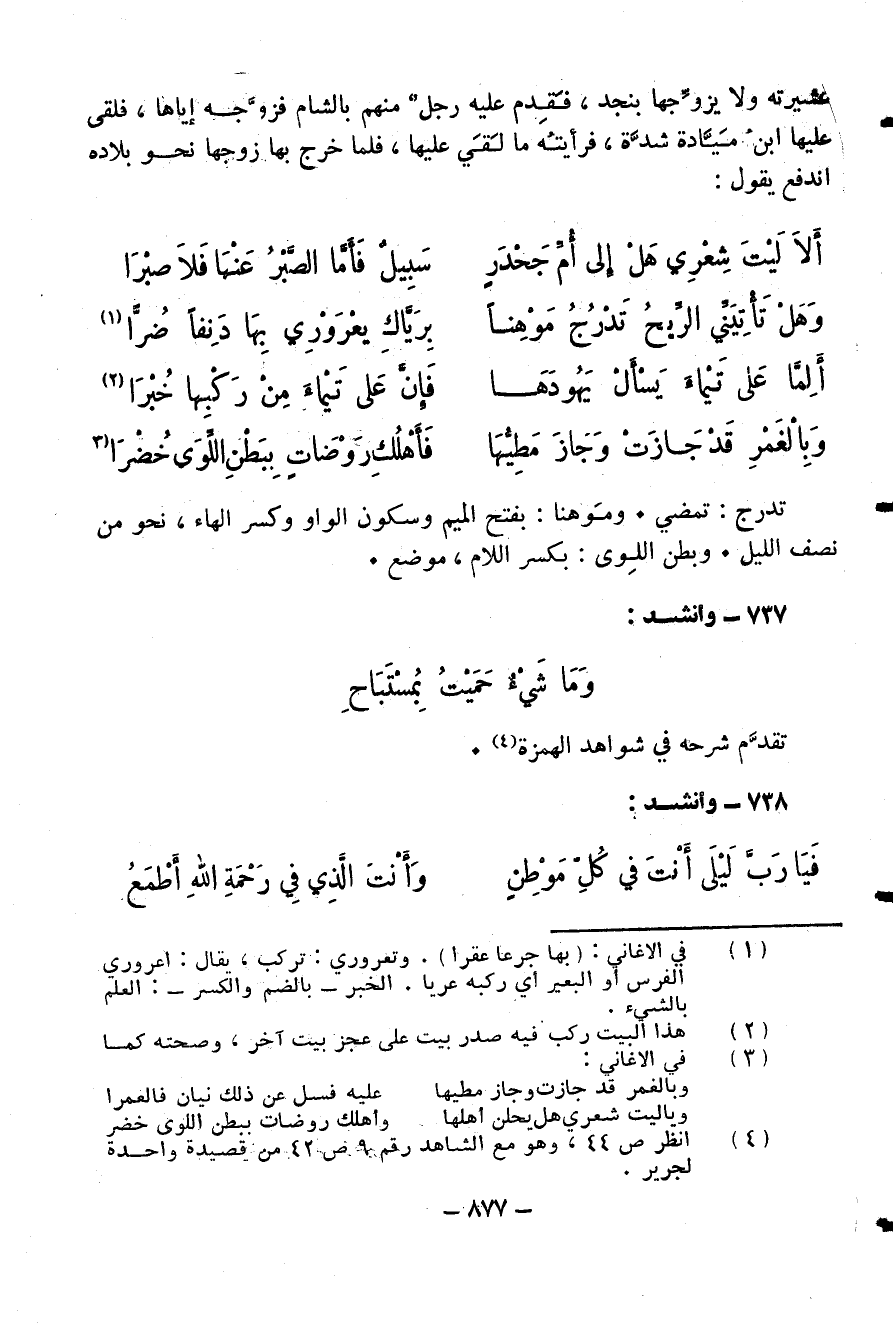 عشيرته ولا يزوِّجها بنجد ، فقدِم عليه رجلٌ منهم بالشام فزوَّجه إياها ، فلقى
عليها ابنُ مَيَّادة شدةً ، فرأيتُه ما لَقيَ عليها ، فلما خرج بها زوجها نحو بلاده
اندفع يقول :
أَلاَ لَيْتَ شِعْرِي هَلْ إلى أُمِّ جَحْدَرٍ سَبِيلٌ فَأَمَّا الصَّبْرُ عَنْهَا فَلاَ صبْرَا
وَهَلْ تَأْتِيَنِّي الرِّيحُ تَدْرُجُ مَوْهِناً بِرَيَّاكِ يعْرَوْرِي بِهَا دَنِفاً ضُرًّا (١)
أَلِمَّا عَلَى تَيْمَاءَ يَسْأَلْ يَهُودَهَا فَإِنَّ عَلَى تَيْمَاءَ مِنْ رَكْبِها خُبْرَا (٢)
وَبِالْغَمْرِ قَدْ جَازَتْ وَجَازَ مَطِيُّهَا فَأَهْلُكِ رَوْضَاتٍ بِبَطْنِ اللَّوَى خُضْرَا (٣)
تدرج : تمضي . ومَوهنا : بفتح الميم وسكون الواو وكسر الهاء ، نحو من
نصف الليل . وبطن اللِوى : بكسر اللام ، موضع .
٧٣٧ – وأنشد :
وَمَا شَيْءٌ حَمَيْتُ بِمُسْتَبَاحِ
تقدَّم شرحه في شواهد الهمزة (٤) .
٧٣٨ – وأنشد :
فَيَا رَبَّ لَيْلَى أَنْتَ في كُلِّ مَوْطِنٍ وَأَنْتَ الَّذِي فِي رَحْمَةِ اللهِ أَطْمَعُ
(١) في الاغاني : ( بها جرعا عقرا ) . وتعروري : تركب ، يقال : اعروري
الفرس أو البعير أي ركبه عريا . الخبر – بالضم والكسر – : العلم
بالشيء .
(٢) هذا البيت ركب فيه صدر بيت على عجز بيت آخر ، وصحته كما
(٣) في الاغاني :
وبالغمر قد جازت وجاز مطيها عليه فسل عن ذلك نيان فالغمرا
وياليت شعري هل يحلن أهلها وأهلك روضات ببطن اللوى خضر
(٤) انظر ص ٤٤ ، وهو مع الشاهد رقم ٩ ص ٤٢ من قصيدة واحدة
لجرير .
– ٨٧٧ –